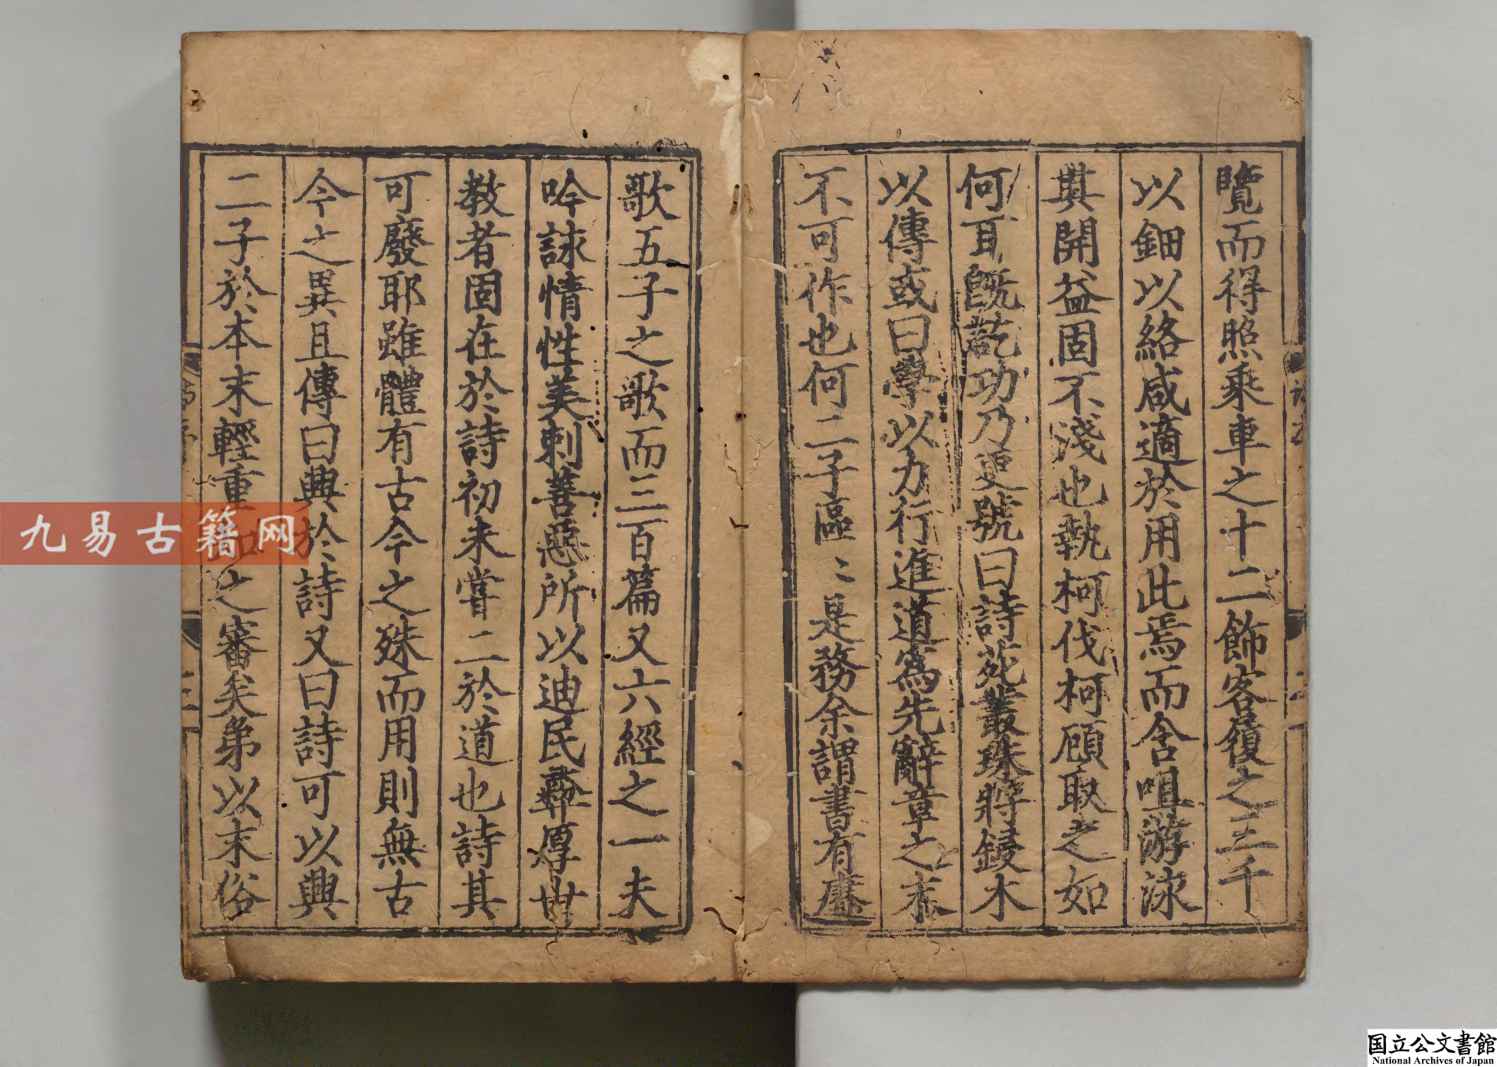 覽而得照乘車之十二飾客履之三千
以鈿以絡咸適於用此焉而含咀游泳
其開益固不淺也執柯伐柯顧取之如
何耳既訖功乃更號曰詩苑叢珠將鋟木
以傳或曰學以力行進道爲先辭章之末
不可作也何二子區〻是務余謂書有賡
歌五子之歌而三百篇又六經之一夫
吟詠情性美刺善惡所以迪民彝厚世
教者固在於詩初未嘗二於道也詩其
可廢耶雖體有古今之殊而用則無古
今之異且傳曰興於詩又曰詩可以興
二子於本末輕重之審矣弟以末俗
九易古籍网
国立公文書館
National Archives of Japan